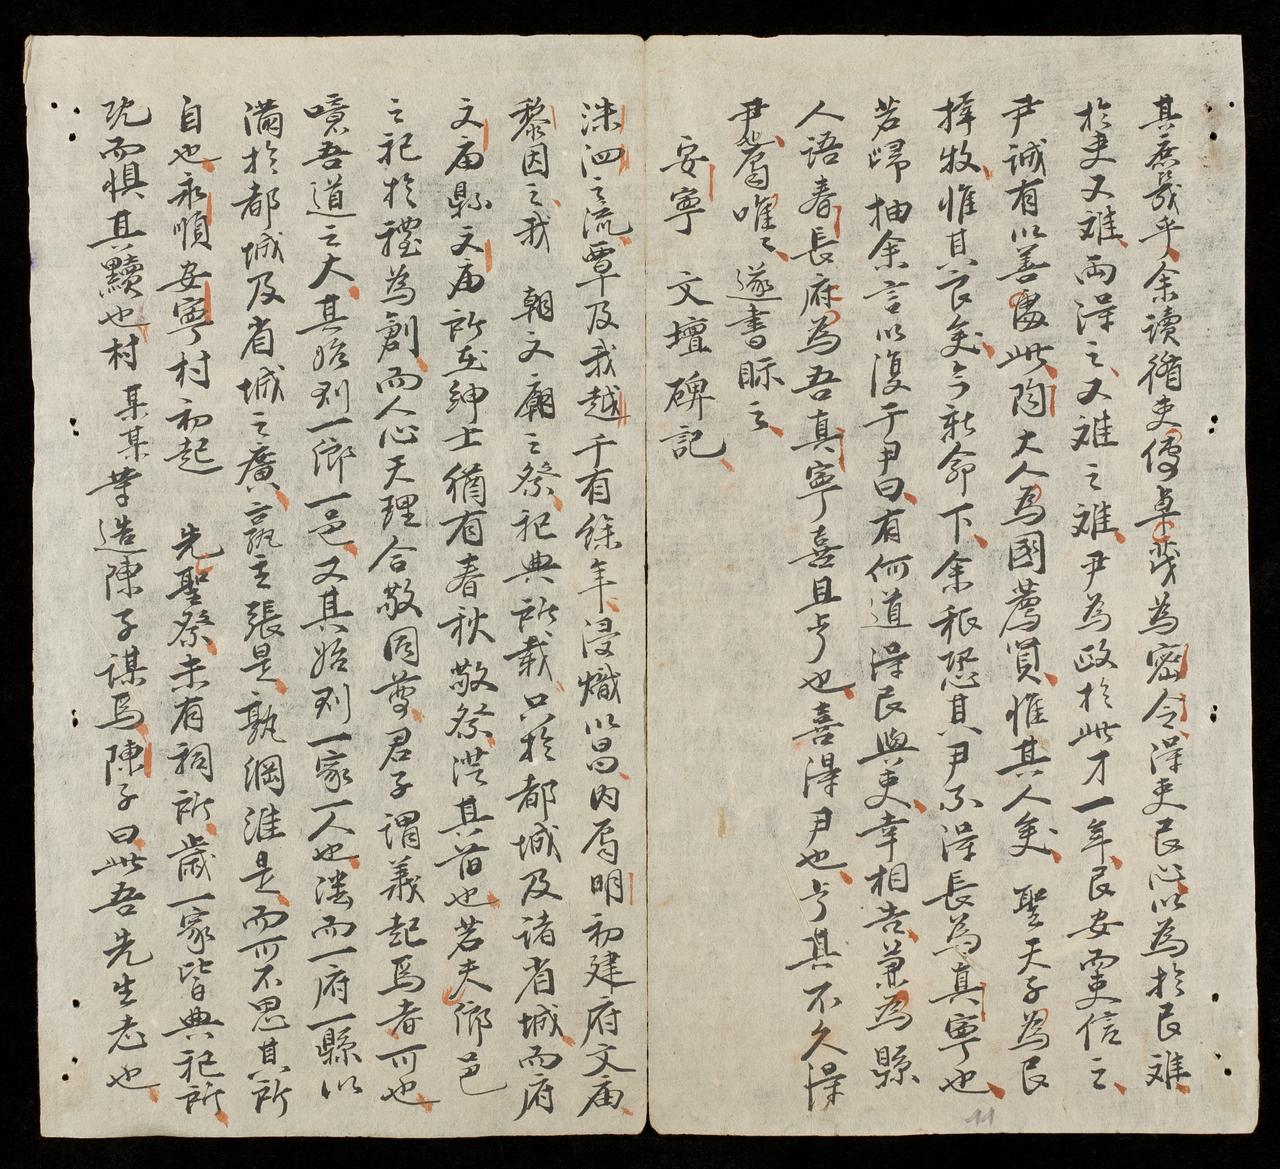 其庶幾乎余讀循吏傳卓茂為密令得吏民心以為於民難
於吏又難両得之又難之難尹為政於此才一年民安吏信之
尹誠有以善處此陶大人為國薦賢惟其人矣 聖天子為民
擇牧惟其良矣今新命下余秪恐其尹不得長為真寧也
若歸 抽余言以復于尹曰有何道得民與吏幸相告兼為縣
人語春長府為吾真寧喜且亏也喜得尹也亏其不久得
尹屬唯々遂書眎之
安寧 文壇碑記
洙泗之流覃及我越千有餘年浸熾以昌内屬明初建府文庙
黎因之我 朝文廟之祭祀典所載只於都城及諸省城而府
文庙縣文庙所在紳士猶有春秋敬祭從其旧也若夫鄉邑
之祀於禮為創而人心天理合敬同尊君子謂義起焉者可也
噫吾道之大其始列一鄉一邑又其始列一家一人也溇而一府一縣以
滿於都城及省城之廣孰主張是孰綱維是而可不思其所
自也永順安寧村初起 先聖祭未有祠所歲一家皆典祀所
既而惧其黷也村 某某等造陳子謀焉陳子曰此吾先生志也